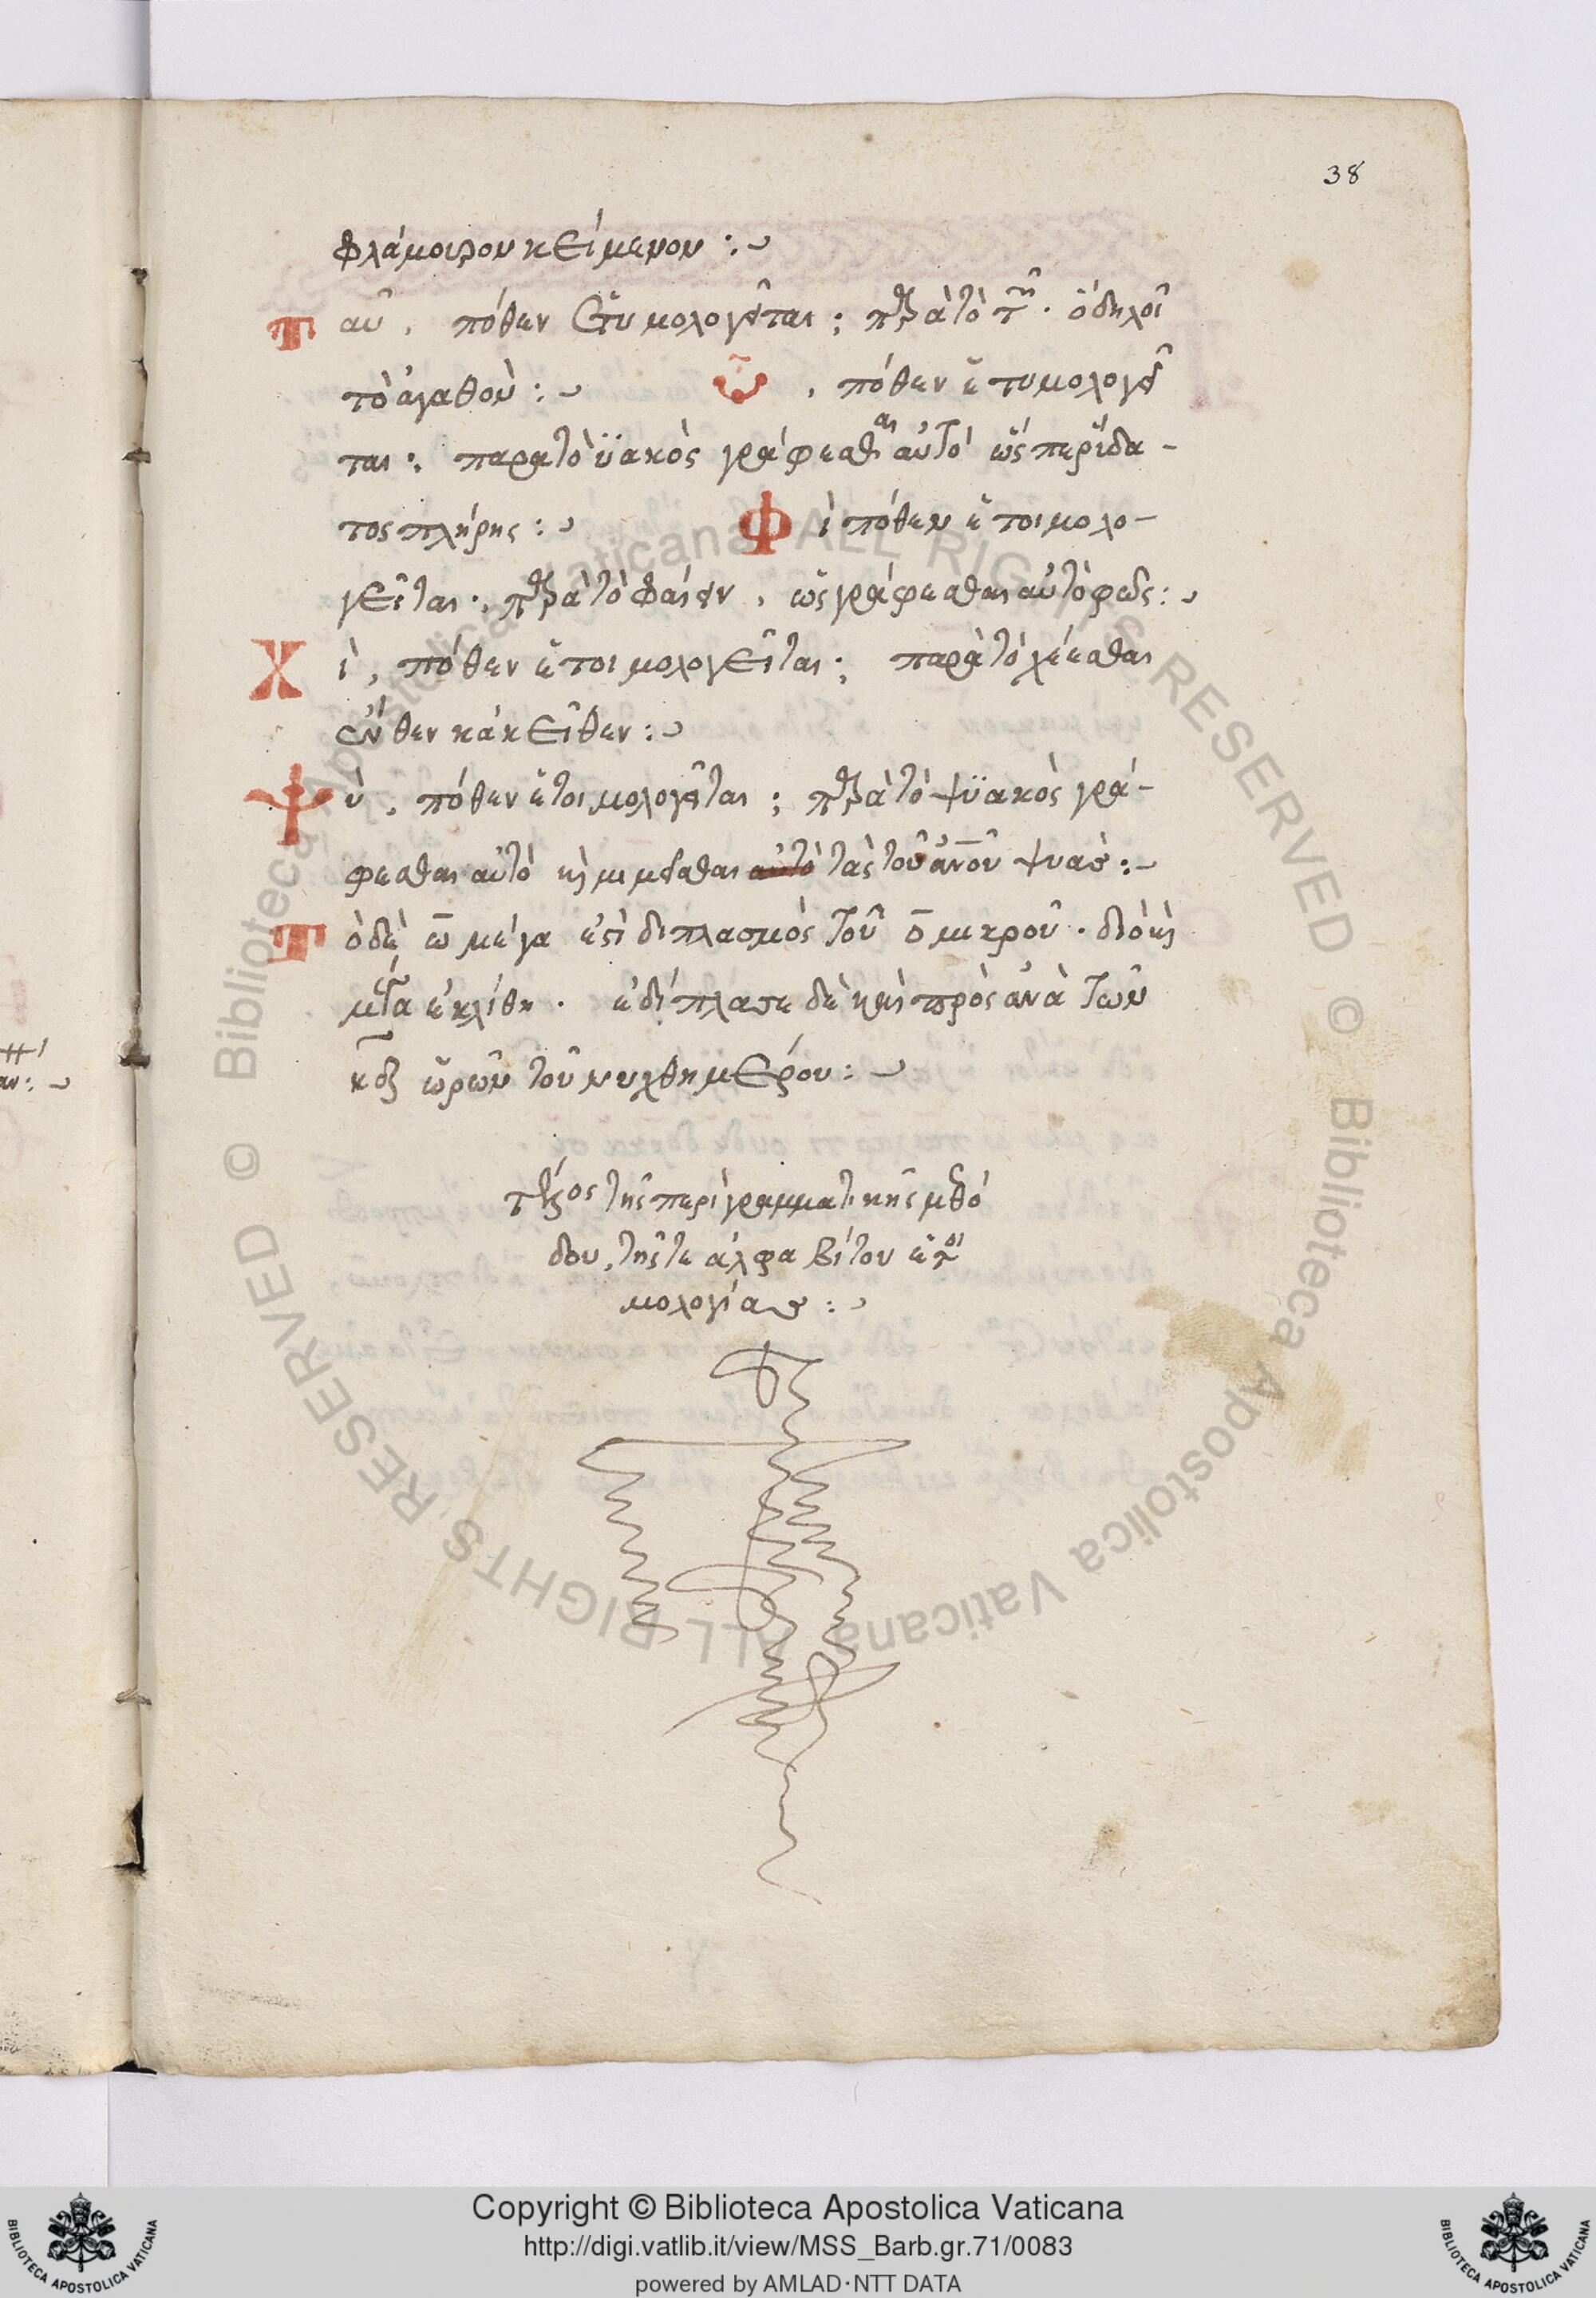 38
φλάμουρον κείμενον :~
Ταῦ, πόθεν ἐτυμολογεῖται; παρὰ τὸ τ · ὁ δηλοῖ
τὸ ἀγαθοῦ :~ ῡ, πόθεν ἐτυμολογεῖ
ται; παρα τὸ ϋακὸς γράφεσθαι αὐτὸ
τος πλήρης :~ Φὶ πόθεν ἐτοιμολο-
γεῖται; παρὰ τὸ φαίνειν, ὡς γράφεσθαι αὐτὸ φῶς :~
Χὶ, πόθεν ἐτοιμολογεῖται; παρὰ τὸ χέεσθαι
ἔνθεν κἀκεῖθεν :~
Ψὺ, πόθεν ἐτοιμολογεῖται; παρὰ τὸ ψϋακὸς γρά-
φεσθαι αὐτὸ καὶ μιμεῖσθαι αὐτὸ τὰς τοῦ ἀνου ψυασ :~
Τὸ δὲ ω̄ μέγα ἐστὶ διπλασμὸς τοῦ ο̄ μικροῦ · διὸ καὶ
μέγα ἐκλίθη · ἐδίπλασε δὲ καὶ πρὸς ἀνὰ τῶν
κδ ὡρῶν τοῦ νυχθημέρου :~
τέλος τῆς περὶ γραμματικῆς μεθό
δου, τῆς τε ἀλφαβίτου ἐτοι
μολογίασ :~
Copyright © Biblioteca Apostolica Vaticana
http://digi.vatlib.it/view/MSS_Barb.gr.71/0083
powered by AMLAD·NTT DATA
BIBLIOTECA APOSTOLICA VATICANA
BIBLIOTECA APOSTOLICA VATICANA
© Biblioteca Apostolica Vaticana ALL RIGHTS RESERVED © Biblioteca Apostolica Vaticana ALL RIGHTS RESERVED